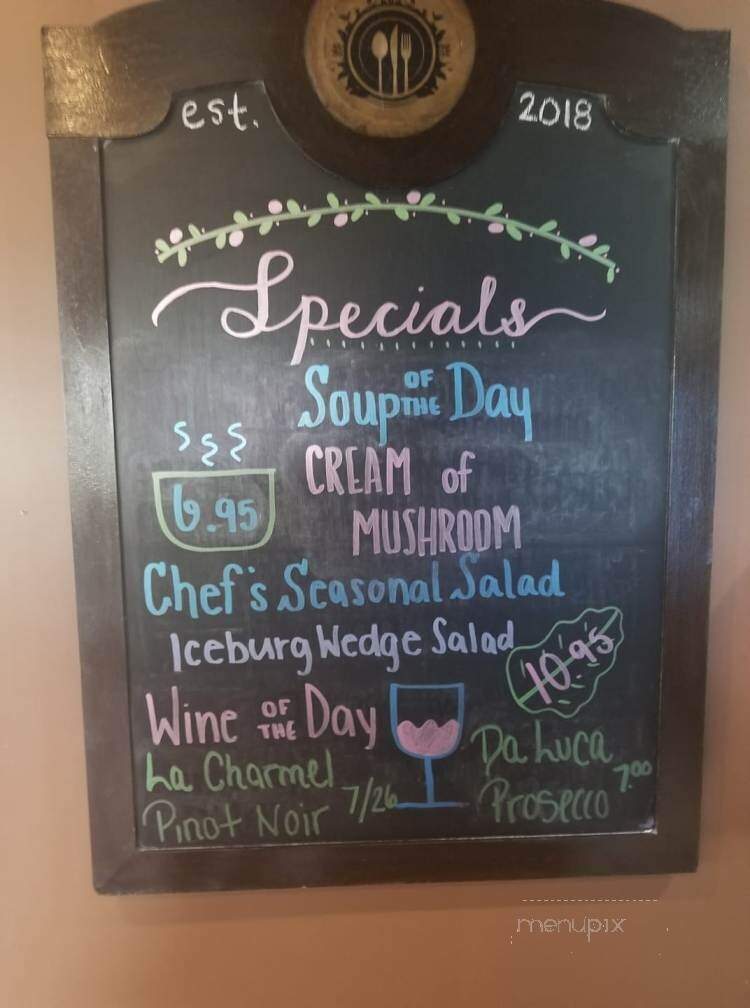 est. 2018
Specials
Soup OF THE Day
CREAM of
MUSHROOM
6.95
Chef's Seasonal Salad
Iceburg Wedge Salad
10.95
Wine OF THE Day
La Charmel
Pinot Noir 7/26
Da Luca
Prosecco 7.00
menupix